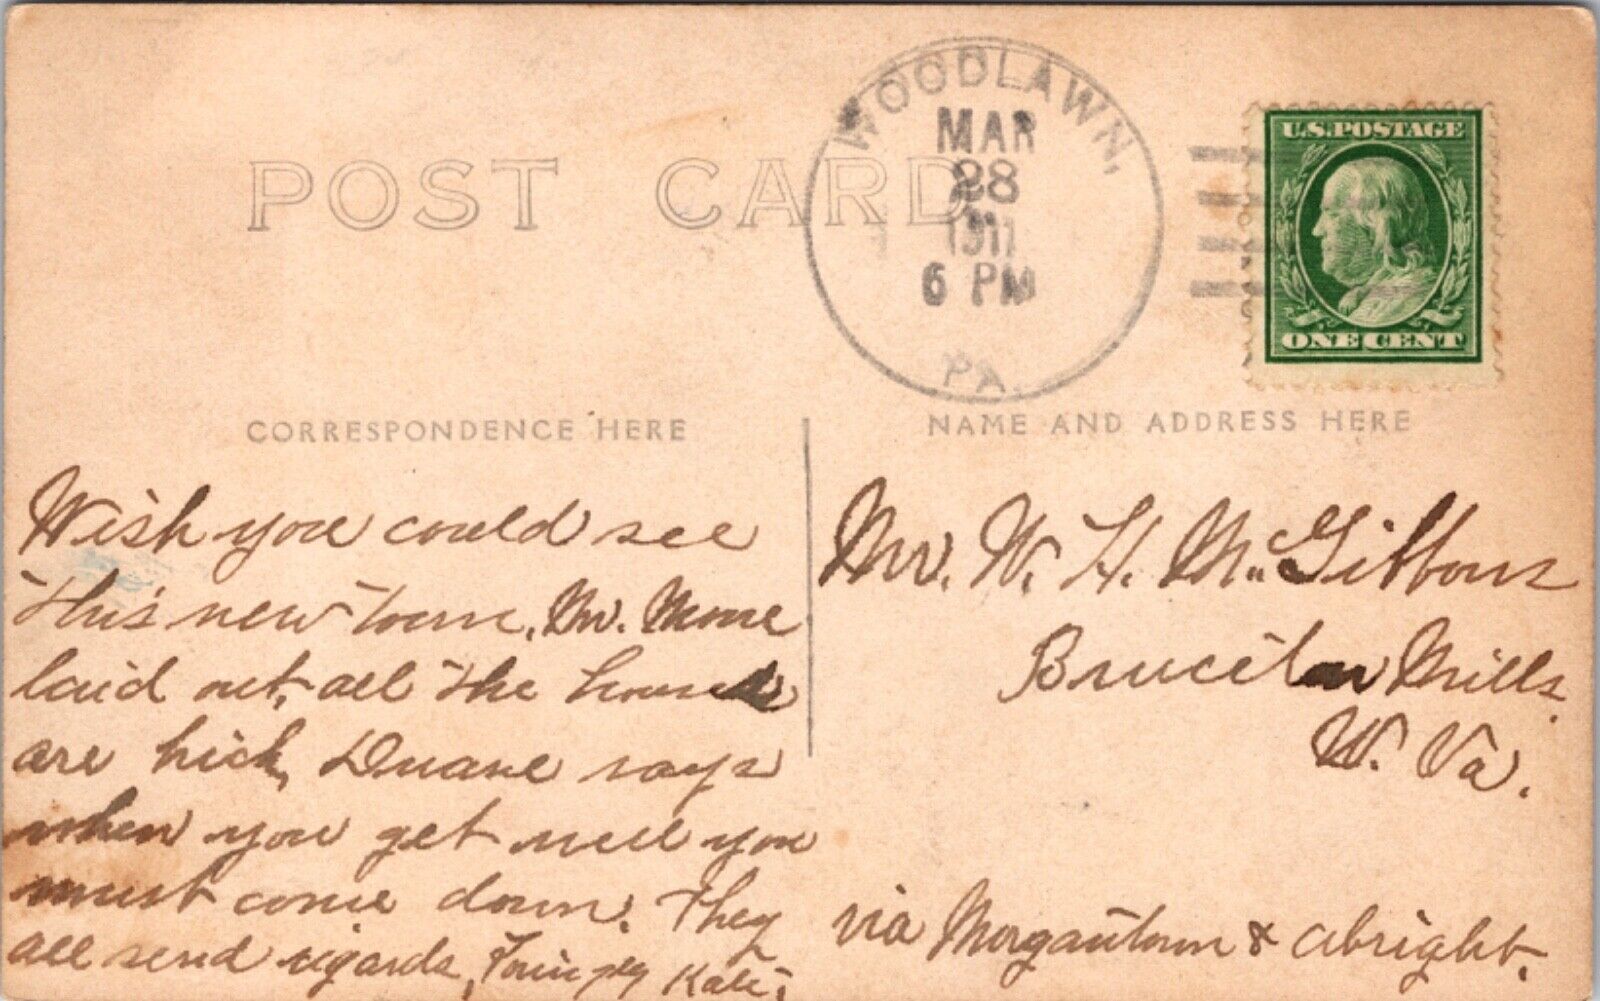 WOODLAWN,
MAR
28
1911
6 PM
PA.
U.S. POSTAGE
ONE CENT
POST CARD
CORRESPONDENCE HERE
Wish you could see
this new town, Mr. Moore
laid out, all the houses
are hick, Duane says
when you get well you
must come down. They
all send rigards, Kate,
NAME AND ADDRESS HERE
Mr. W. H. McGibbons
Bruceton Mills.
W. Va.
via Morgantown & Albright.